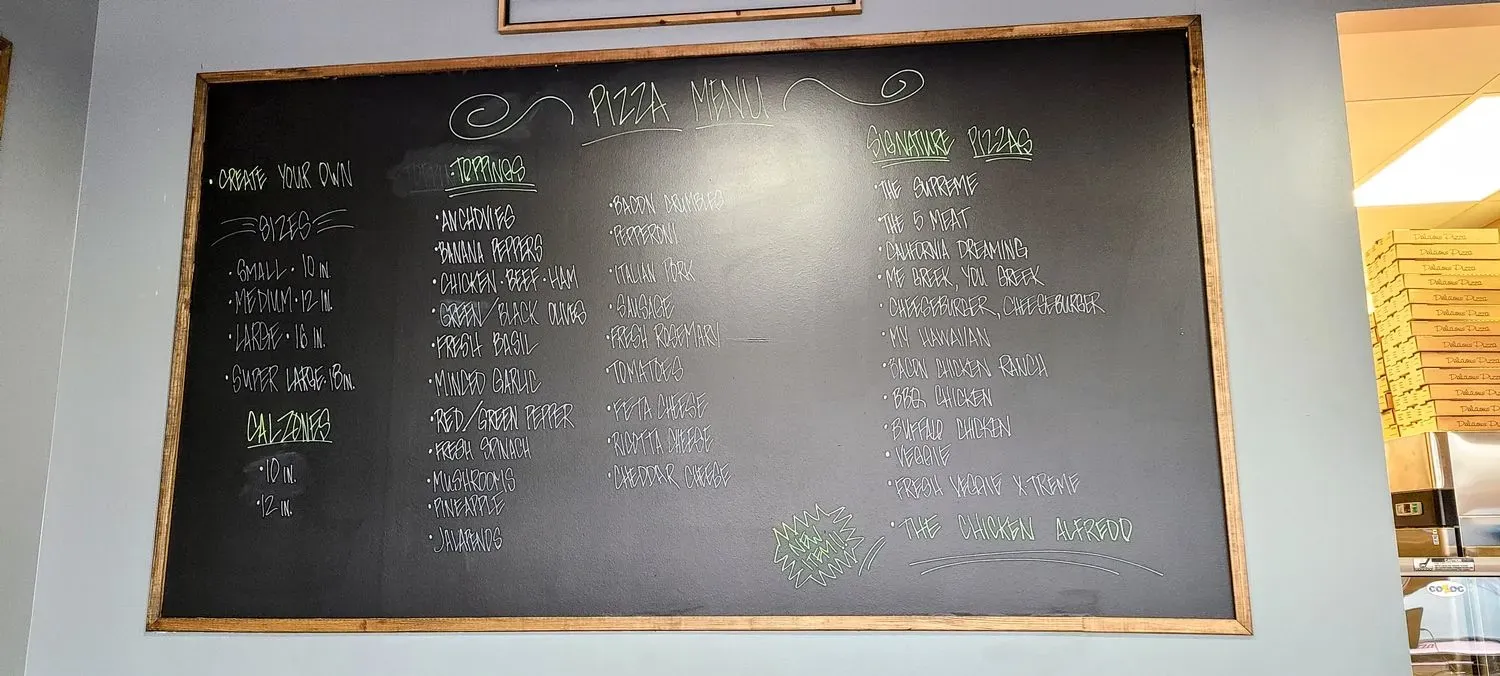 PIZZA MENU
• CREATE YOUR OWN
SIZES
• SMALL • 10 IN.
• MEDIUM • 12 IN.
• LARGE • 16 IN.
• SUPER LARGE • 18 IN.
CALZONES
• 10 IN.
• 12 IN.
• TOPPINGS
• ANCHOVIES
• BANANA PEPPERS
• CHICKEN • BEEF • HAM
• GREEN/BLACK OLIVES
• FRESH BASIL
• MINCED GARLIC
• RED/GREEN PEPPER
• FRESH SPINACH
• MUSHROOMS
• PINEAPPLE
• JALAPENOS
• BACON CRUMBLES
• PEPPERONI
• ITALIAN PORK
• SAUSAGE
• FRESH ROSEMARY
• TOMATOES
• FETA CHEESE
• RICOTTA CHEESE
• CHEDDAR CHEESE
SIGNATURE PIZZAS
• THE SUPREME
• THE 5 MEAT
• CALIFORNIA DREAMING
• ME GREEK, YOU GREEK
• CHEESEBURGER, CHEESEBURGER
• MY HAWAIIAN
• BACON CHICKEN RANCH
• BBQ CHICKEN
• BUFFALO CHICKEN
• VEGGIE
• FRESH VEGGIE X-TREME
• THE CHICKEN ALFREDO
NEW
ITEM!!
Delicious Pizza
Delicious Pizza
Delicious Pizza
Delicious Pizza
Delicious Pizza
Delicious Pizza
Delicious Pizza
Delicious Pizza
Delicious Pizza
Delicious Pizza
Delicious Pizza
CAUTION